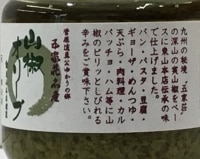 九州の秘境、五家荘
の深山の実山椒をベー
スに東山本店伝承の味
で仕上げました。
パン・パスタ・豆腐・
ギョーザ・めんつゆ・
天ぷら・肉料理・カル
パッチョ・ハム等に山
椒のピリッとしびれる
辛みをご賞味下さい。
菅原道真公ゆかりの郷
山椒
オリーブ